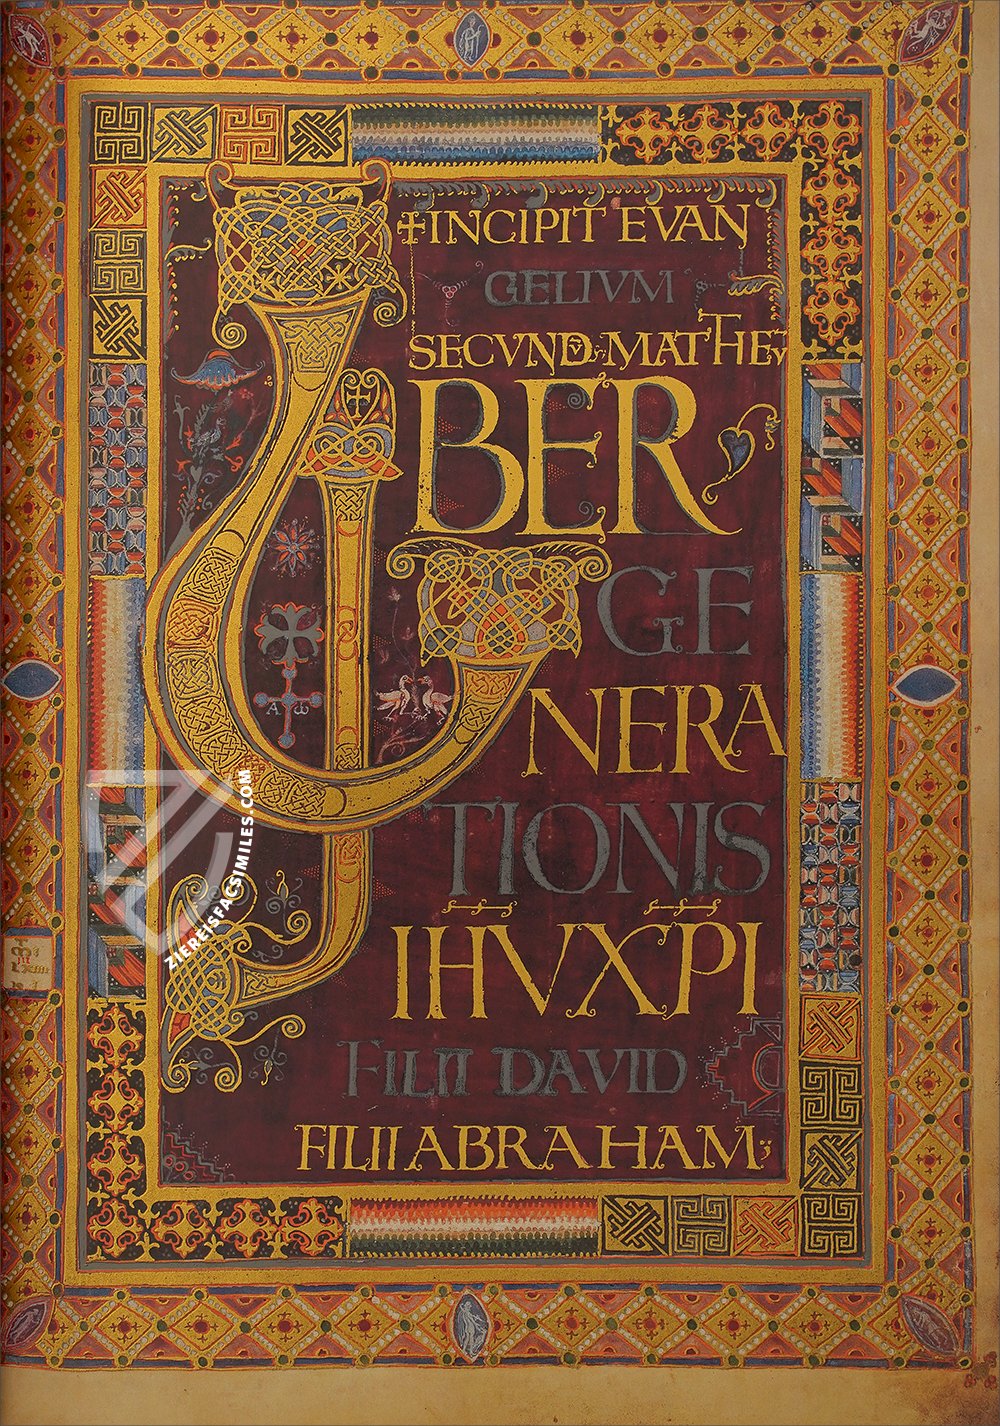 +INCIPIT EVAN
GELIVM
SECVND·MATTHEV
LIBER
GE
NERA
TIONIS
IHV XPI
FILII DAVID
FILII ABRAHAM;
A ω
ZIEREISFACSIMILES.COM